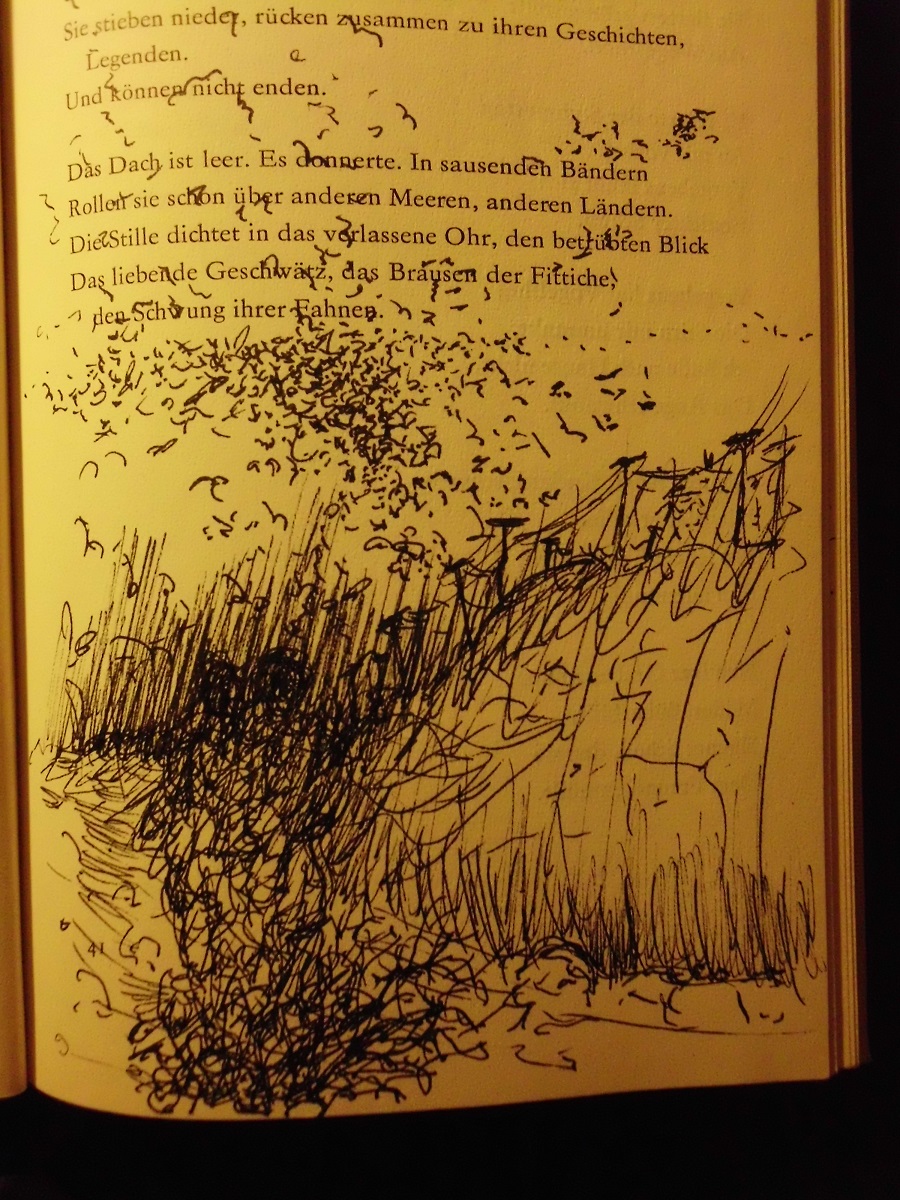 Sie stieben nieder, rücken zusammen zu ihren Geschichten,
Legenden.
Und können nicht enden.
Das Dach ist leer. Es donnerte. In sausenden Bändern
Rollen sie schon über anderen Meeren, anderen Ländern.
Die Stille dichtet in das verlassene Ohr, den betrübten Blick
Das liebende Geschwätz, das Brausen der Fittiche,
den Schwung ihrer Fahnen.
41